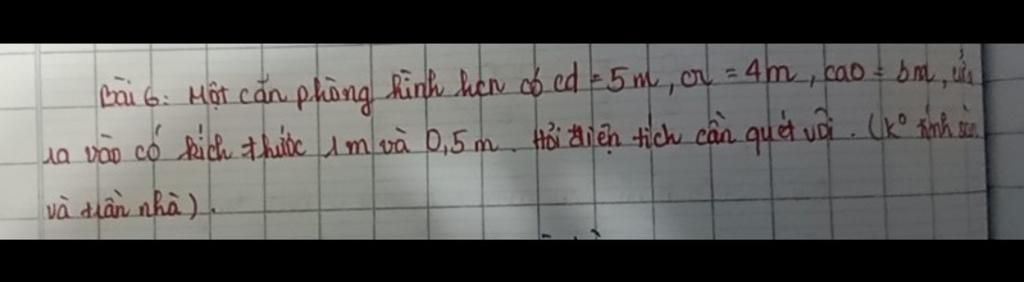 Bài 6: Một căn phòng hình hcn có cd = 5m, cr = 4m, cao = 6m, cửa
ra vào có kích thước 1m và 0,5m. Hỏi diện tích cần quét vôi. (k° tính sàn
và trần nhà).